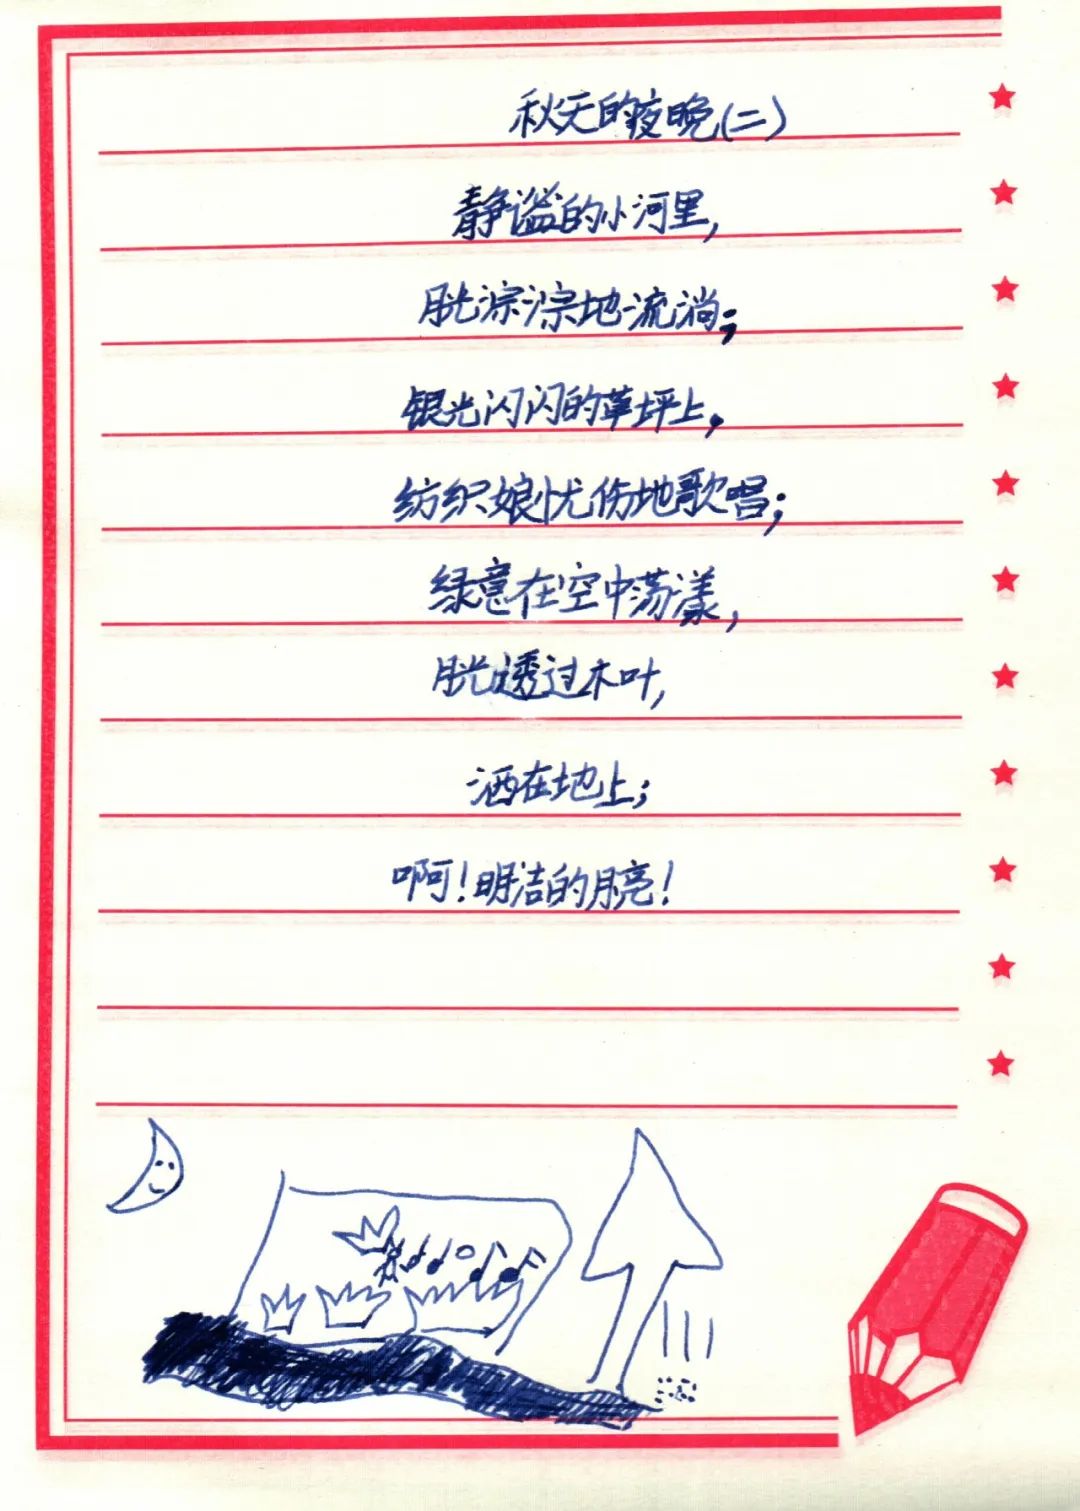 秋天的夜晚(二)
静谧的小河里,
月光淙淙地流淌;
银光闪闪的草坪上,
纺织娘忧伤地歌唱;
绿意在空中荡漾,
月光透过木叶,
洒在地上;
啊!明洁的月亮!